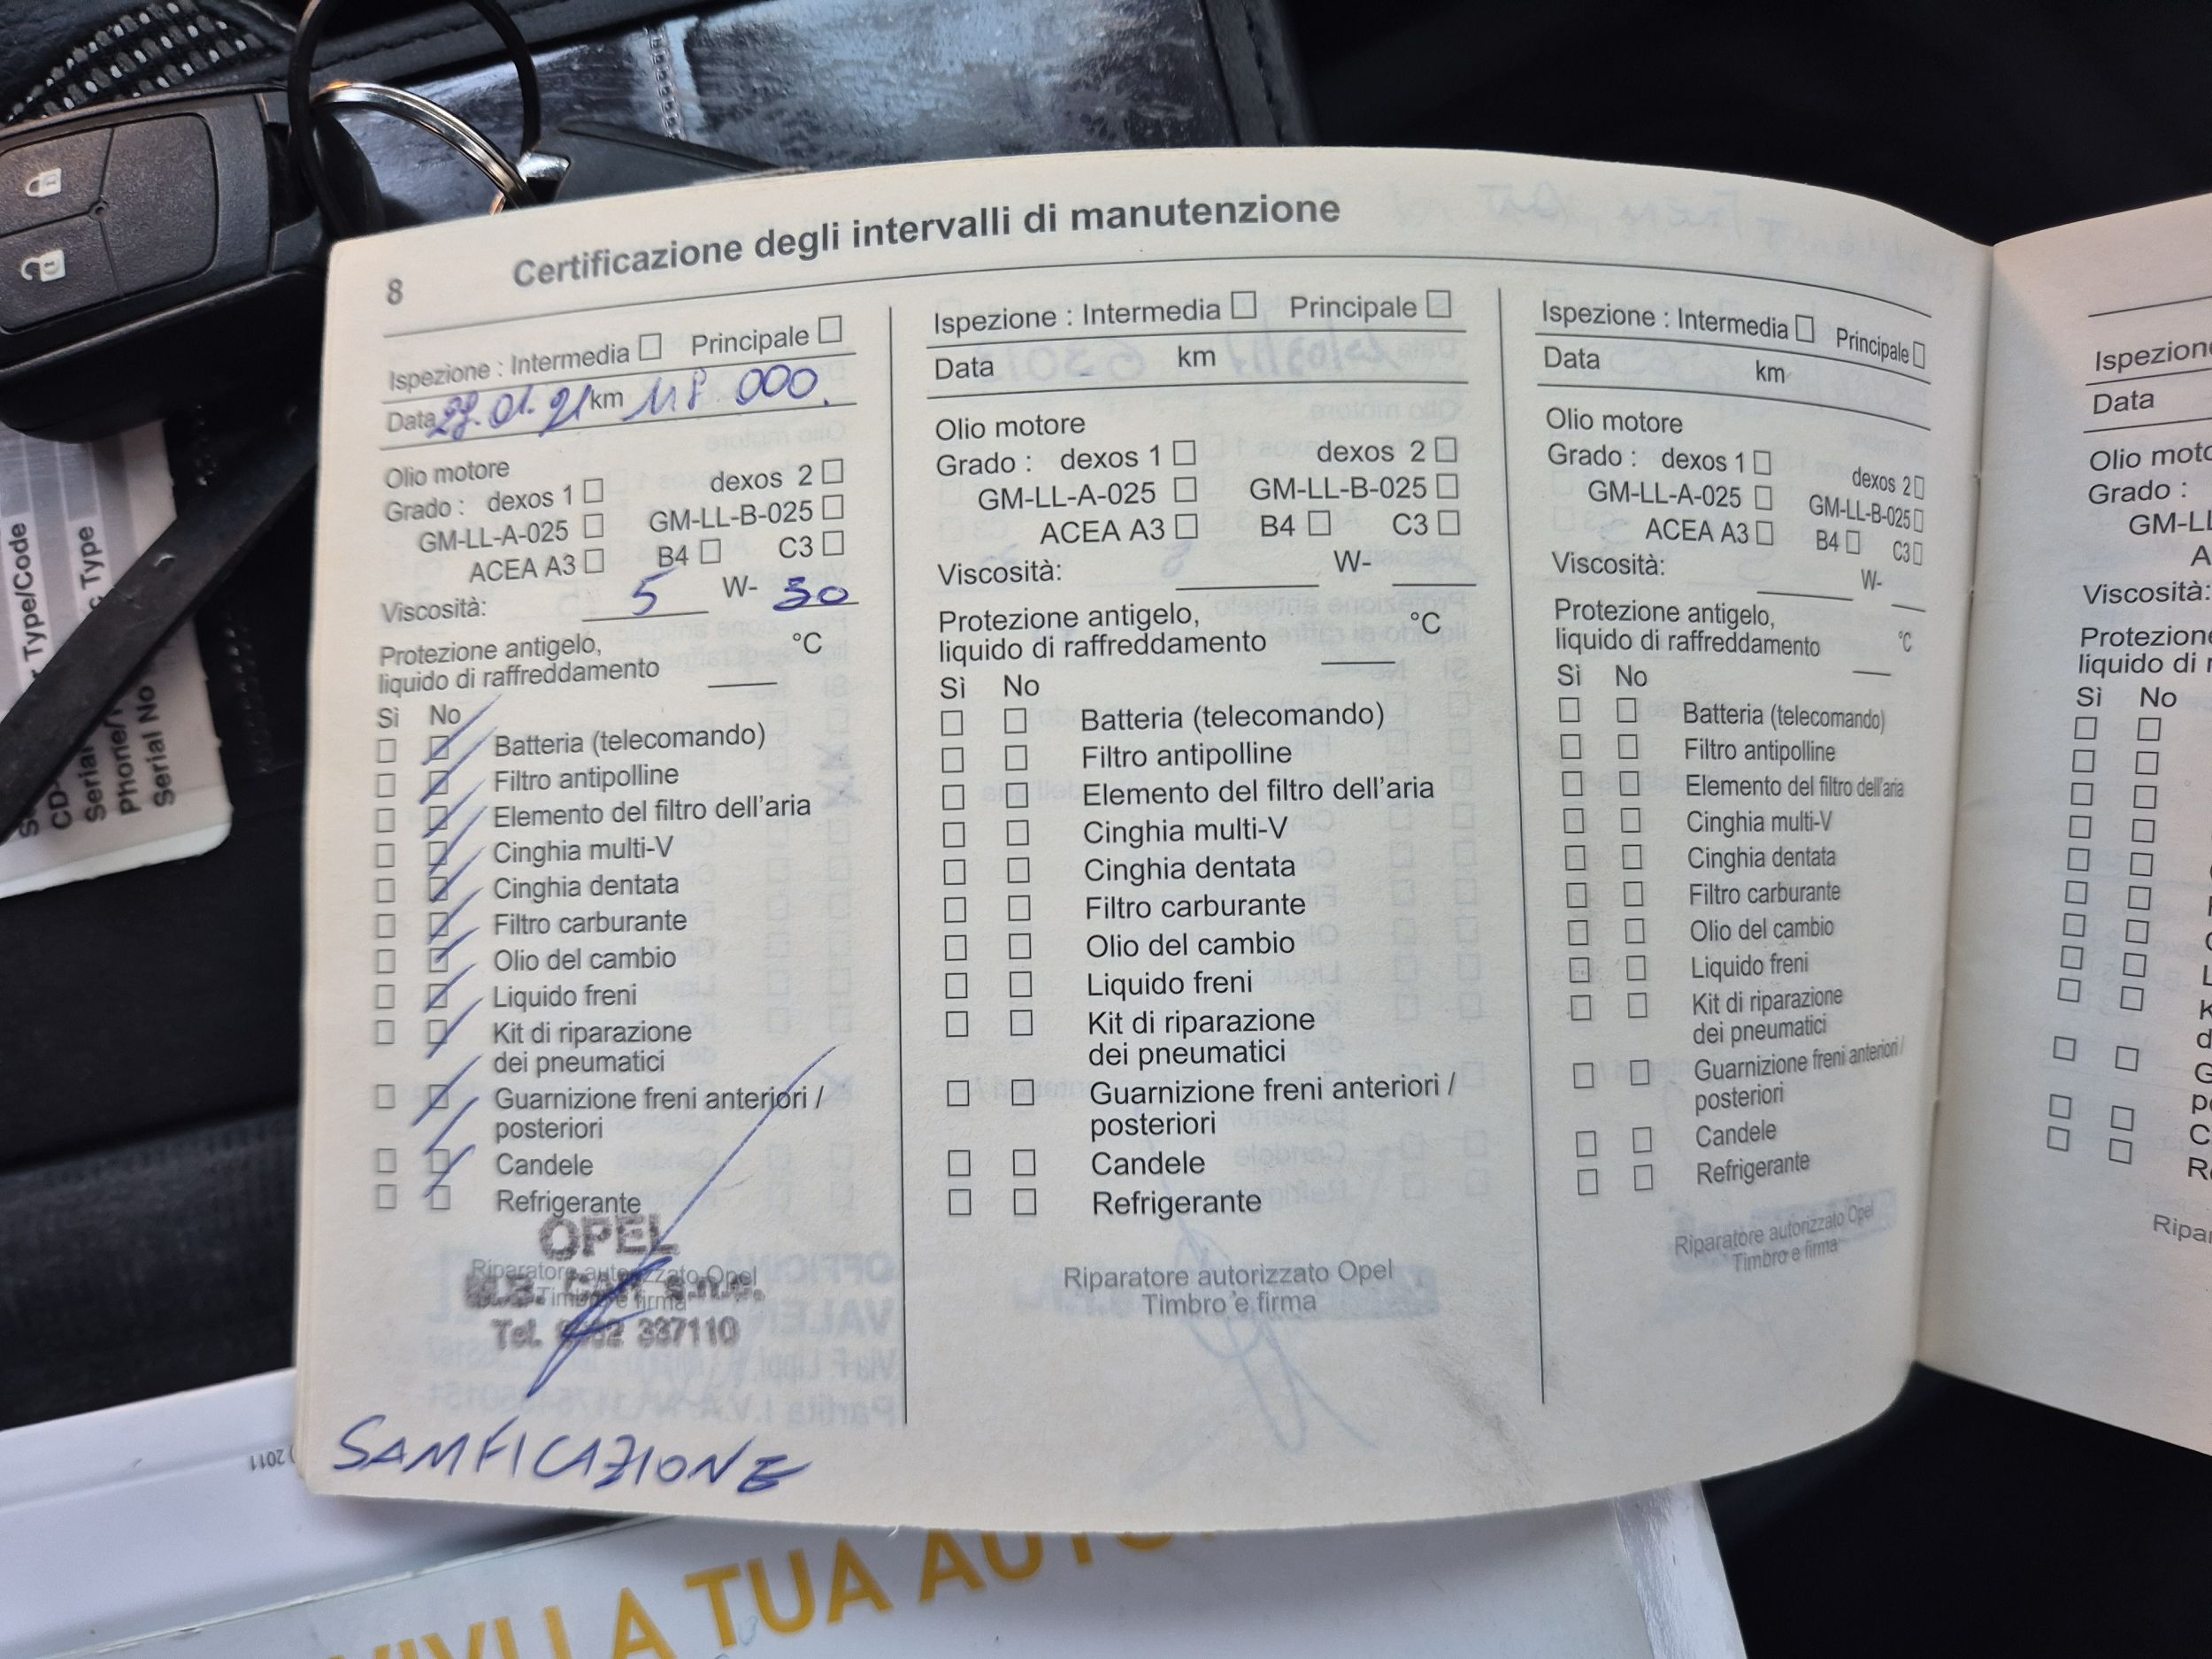 8 Certificazione degli intervalli di manutenzione
Ispezione : Intermedia ☐ Principale ☐
Data 27.01.21 km 118 000.
Olio motore
Grado : dexos 1 ☐ dexos 2 ☐
GM-LL-A-025 ☐ GM-LL-B-025 ☐
ACEA A3 ☐ B4 ☐ C3 ☐
Viscosità: 5 W- 30
Protezione antigelo, °C
liquido di raffreddamento
Sì No
Batteria (telecomando)
Filtro antipolline
Elemento del filtro dell'aria
Cinghia multi-V
Cinghia dentata
Filtro carburante
Olio del cambio
Liquido freni
Kit di riparazione
dei pneumatici
Guarnizione freni anteriori /
posteriori
Candele
Refrigerante
OPEL
Riparatore autorizzato Opel
M.B. CAR s.n.c.
Timbro e firma
Tel. 337110
SANIFICAZIONE
Ispezione : Intermedia ☐ Principale ☐
Data km
Olio motore
Grado : dexos 1 ☐ dexos 2 ☐
GM-LL-A-025 ☐ GM-LL-B-025 ☐
ACEA A3 ☐ B4 ☐ C3 ☐
Viscosità: W-
Protezione antigelo, °C
liquido di raffreddamento
Sì No
Batteria (telecomando)
Filtro antipolline
Elemento del filtro dell'aria
Cinghia multi-V
Cinghia dentata
Filtro carburante
Olio del cambio
Liquido freni
Kit di riparazione
dei pneumatici
Guarnizione freni anteriori /
posteriori
Candele
Refrigerante
Riparatore autorizzato Opel
Timbro e firma
Ispezione : Intermedia ☐ Principale ☐
Data km
Olio motore
Grado : dexos 1 ☐ dexos 2 ☐
GM-LL-A-025 ☐ GM-LL-B-025 ☐
ACEA A3 ☐ B4 ☐ C3 ☐
Viscosità: W-
Protezione antigelo, °C
liquido di raffreddamento
Sì No
Batteria (telecomando)
Filtro antipolline
Elemento del filtro dell'aria
Cinghia multi-V
Cinghia dentata
Filtro carburante
Olio del cambio
Liquido freni
Kit di riparazione
dei pneumatici
Guarnizione freni anteriori /
posteriori
Candele
Refrigerante
Riparatore autorizzato Opel
Timbro e firma
Ispezione
Data
Olio moto
Grado :
GM-LL
A
Viscosità:
Protezione
liquido di r
Sì No
Ripar
Type/Code
Type
CD-
Serial
Phone/
Serial No
2011
VIVI LA TUA AUTO